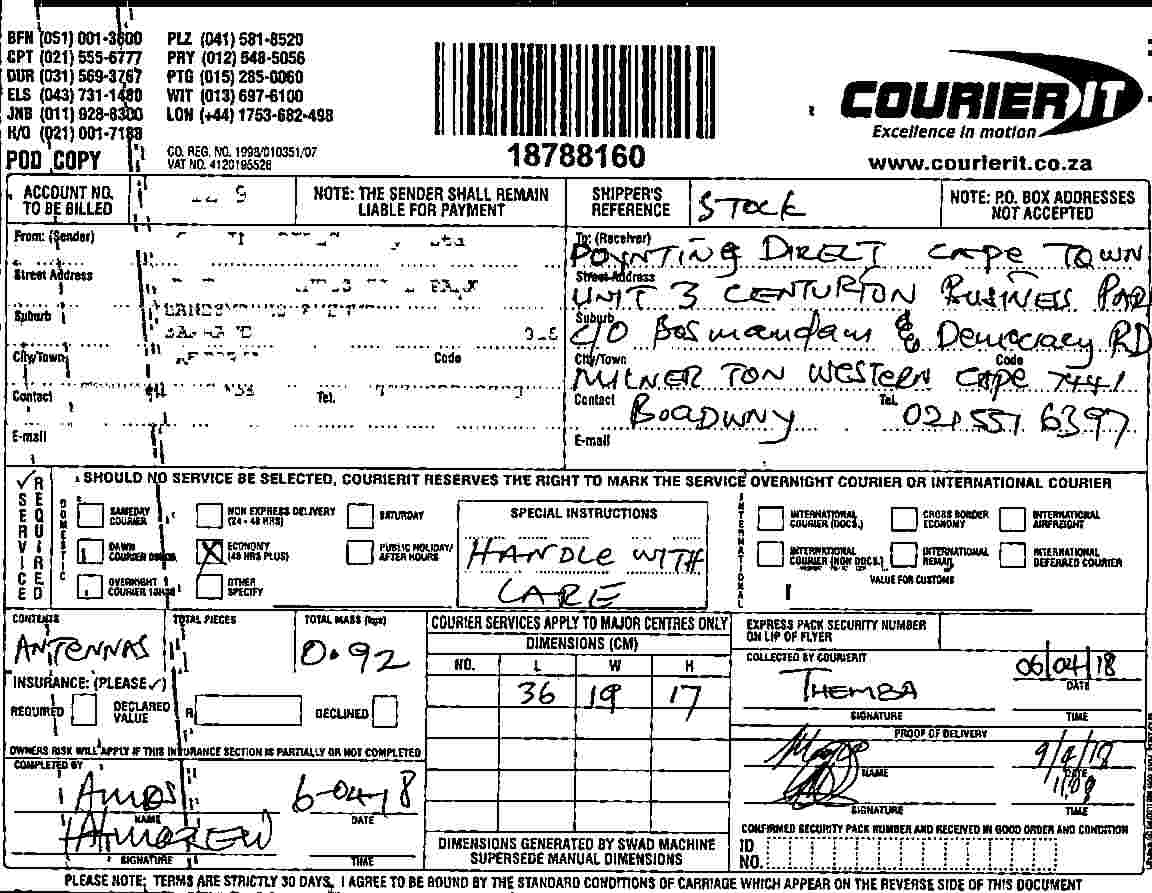 BFN (051) 001-3600 PLZ (041) 581-8520
CPT (021) 555-6777 PRY (012) 548-5056
DUR (031) 569-3767 PTG (015) 285-0060
ELS (043) 731-1480 WIT (013) 697-6100
JNB (011) 928-8300 LON (+44) 1753-682-498
H/O (021) 001-7188
POD COPY
CO. REG. NO. 1998/010351/07
VAT NO. 4120195526
18788160
COURIER IT
Excellence in motion
www.courierit.co.za
ACCOUNT NO. TO BE BILLED
NOTE: THE SENDER SHALL REMAIN LIABLE FOR PAYMENT
SHIPPER'S REFERENCE
STOCK
NOTE: P.O. BOX ADDRESSES NOT ACCEPTED
From: (Sender)
Street Address
Suburb
City/Town Code
Contact Tel.
E-mail
To: (Receiver)
POYNTING DIRECT CAPE TOWN
Street Address
UNIT 3 CENTURION BUSINESS PAR
Suburb
C/O Bosmandam & Democracy RD
City/Town Code
MILNER TON WESTERN CAPE 7441
Contact Tel.
021 551 6397
E-mail
✓ SERVICE REQUIRED
SHOULD NO SERVICE BE SELECTED, COURIERIT RESERVES THE RIGHT TO MARK THE SERVICE OVERNIGHT COURIER OR INTERNATIONAL COURIER
DOMESTIC
SAMEDAY COURIER
NON EXPRESS DELIVERY (24 - 48 HRS)
SATURDAY
DAWN COURIER
ECONOMY (48 HRS PLUS)
PUBLIC HOLIDAY/ AFTER HOURS
OVERNIGHT COURIER
OTHER SPECIFY
SPECIAL INSTRUCTIONS
HANDLE WITH
CARE
INTERNATIONAL
INTERNATIONAL COURIER (DOCS.)
CROSS BORDER ECONOMY
INTERNATIONAL AIRFREIGHT
INTERNATIONAL COURIER (NON DOCS.)
INTERNATIONAL REMAIL
INTERNATIONAL DEFERRED COURIER
VALUE FOR CUSTOMS
CONTENTS
ANTENNAS
TOTAL PIECES
TOTAL MASS (kgs)
0.92
INSURANCE: (PLEASE ✓)
REQUIRED
DECLARED VALUE R
DECLINED
OWNERS RISK WILL APPLY IF THIS INSURANCE SECTION IS PARTIALLY OR NOT COMPLETED
COMPLETED BY
AMOS
NAME
6-04-18
DATE
SIGNATURE
TIME
COURIER SERVICES APPLY TO MAJOR CENTRES ONLY
DIMENSIONS (CM)
NO. L W H
36 19 17
DIMENSIONS GENERATED BY SWAD MACHINE SUPERSEDE MANUAL DIMENSIONS
EXPRESS PACK SECURITY NUMBER ON LIP OF FLYER
COLLECTED BY COURIERIT
THEMBA
SIGNATURE
06/04/18
DATE
TIME
PROOF OF DELIVERY
NAME
9/4/18
DATE
SIGNATURE
TIME
CONFIRMED SECURITY PACK NUMBER AND RECEIVED IN GOOD ORDER AND CONDITION
ID NO.
PLEASE NOTE: TERMS ARE STRICTLY 30 DAYS. I AGREE TO BE BOUND BY THE STANDARD CONDITIONS OF CARRIAGE WHICH APPEAR ON THE REVERSE SIDE OF THIS DOCUMENT